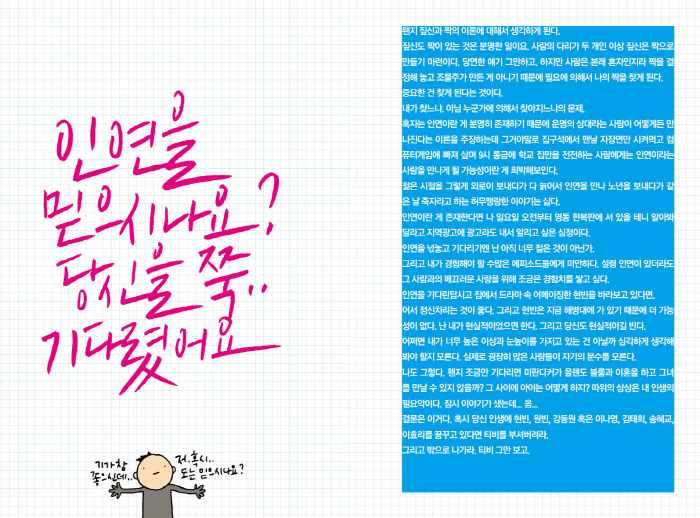 인연을
믿으시나요?
당신을 쭉..
기다렸어요
기가참
좋으신데..
저.혹시..
도는 믿으시나요?
왠지 짚신과 짝의 이론에 대해서 생각하게 된다.
짚신도 짝이 있는 것은 분명한 일이요. 사람의 다리가 두 개인 이상 짚신은 짝으로
만들기 마련이다. 당연한 얘기 그만하고. 하지만 사람은 본래 혼자인지라 짝을 결
정해 놓고 조물주가 만든 게 아니기 때문에 필요에 의해서 나의 짝을 찾게 된다.
중요한 건 찾게 된다는 것이다.
내가 찾느냐. 아님 누군가에 의해서 찾아지느냐의 문제.
혹자는 인연이란 게 분명히 존재하기 때문에 운명의 상대라는 사람이 어떻게든 만
나진다는 이론을 주장하는데 그거야말로 집구석에서 맨날 자장면만 시켜먹고 컴
퓨터게임에 빠져 살며 9시 통금에 학교 집만을 전전하는 사람에게는 인연이라는
사람을 만나게 될 가능성이란 게 희박해보인다.
젊은 시절을 그렇게 외로이 보내다가 다 늙어서 인연을 만나 노년을 보내다가 같
은 날 죽자라고 하는 허무맹랑한 이야기는 싫다.
인연이란 게 존재한다면 나 일요일 오전부터 명동 한복판에 서 있을 테니 알아봐
달라고 지역광고에 광고라도 내서 알리고 싶은 심정이다.
인연을 넋놓고 기다리기엔 난 아직 너무 젊은 것이 아닌가.
그리고 내가 경험해야 할 수많은 에피소드들에게 미안하다. 설령 인연이 있더라도
그 사람과의 매끄러운 사랑을 위해 조금은 경험치를 쌓고 싶다.
인연을 기다린답시고 집에서 드라마 속 어메이징한 현빈을 바라보고 있다면,
어서 정신차리는 것이 좋다. 그리고 현빈은 지금 해병대에 가 있기 때문에 더 가능
성이 없다. 난 내가 현실적이었으면 한다. 그리고 당신도 현실적이길 빈다.
어쩌면 내가 너무 높은 이상과 눈높이를 가지고 있는 건 아닐까 심각하게 생각해
봐야 할지 모른다. 실제로 굉장히 많은 사람들이 자기의 분수를 모른다.
나도 그렇다. 왠지 조금만 기다리면 미란다커가 올랜도 블룸과 이혼을 하고 그녀
를 만날 수 있지 않을까? 그 사이에 아이는 어떻게 하지? 따위의 상상은 내 인생의
필요악이다. 잠시 이야기가 샜는데... 음...
결론은 이거다. 혹시 당신 인생에 현빈, 원빈, 강동원 혹은 이나영, 김태희, 송혜교,
이효리를 꿈꾸고 있다면 티비를 부셔버려라.
그리고 밖으로 나가라. 티비 그만 보고.